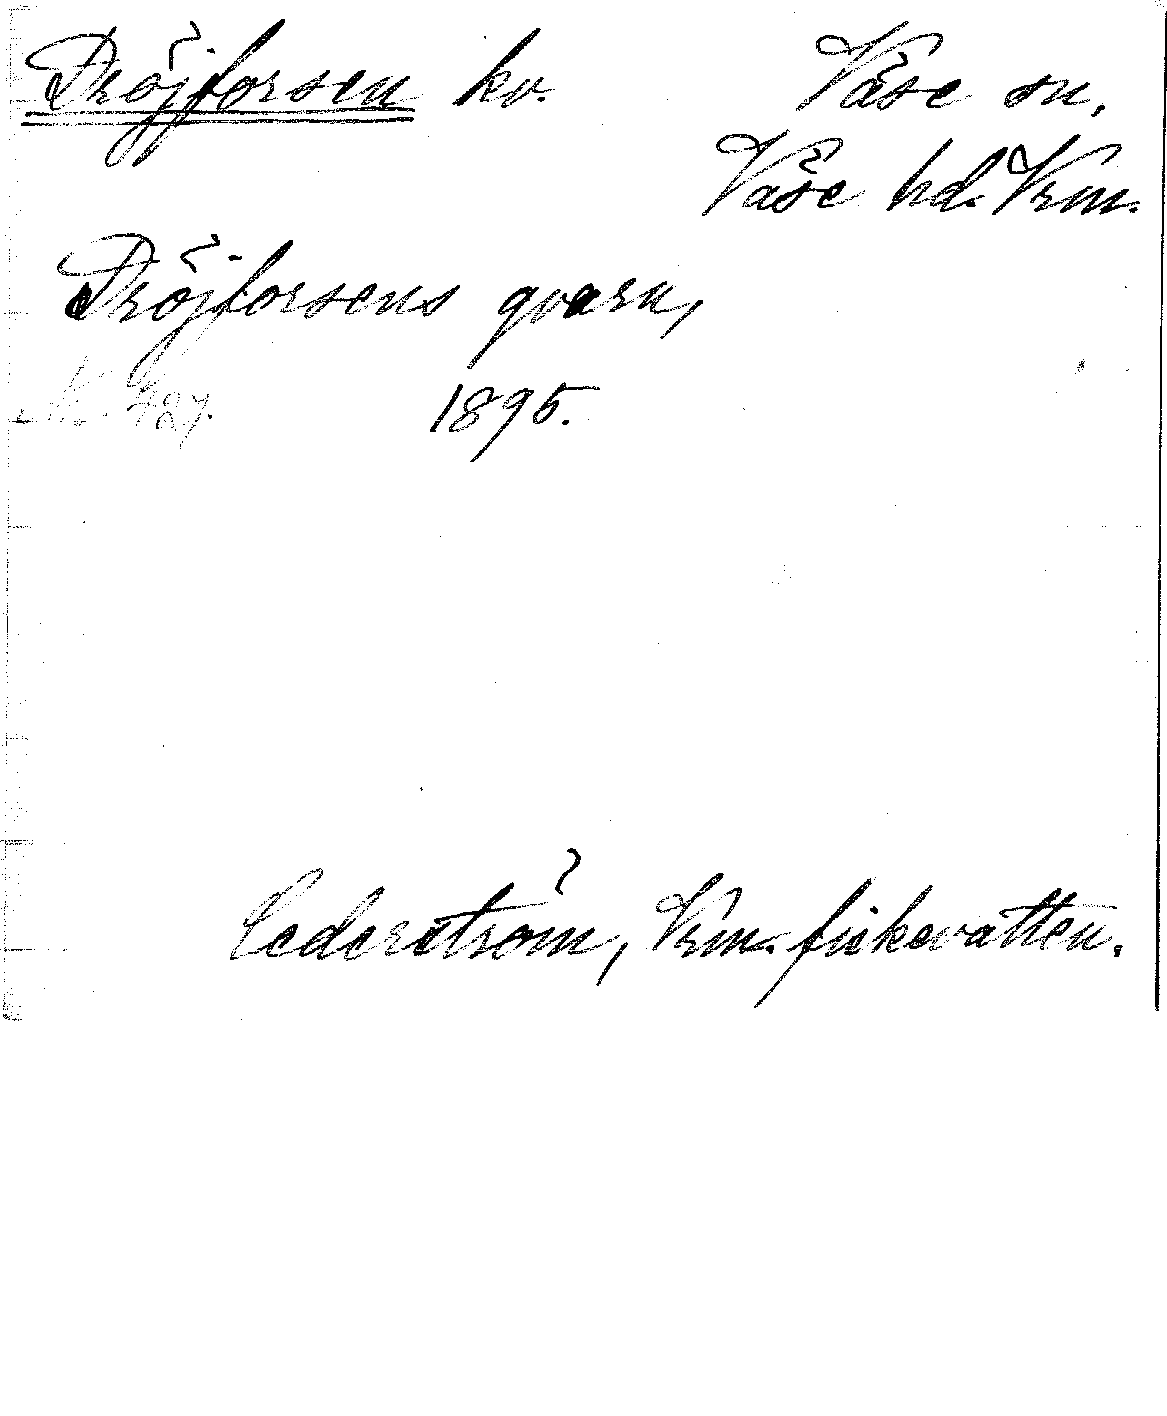 Dröjforsen kv. Väse sn,
Väse hd. Vrm.
Dröjforsens qvarn,
No. 727. 1895.
Cederström, Vrm. fiskevatten.